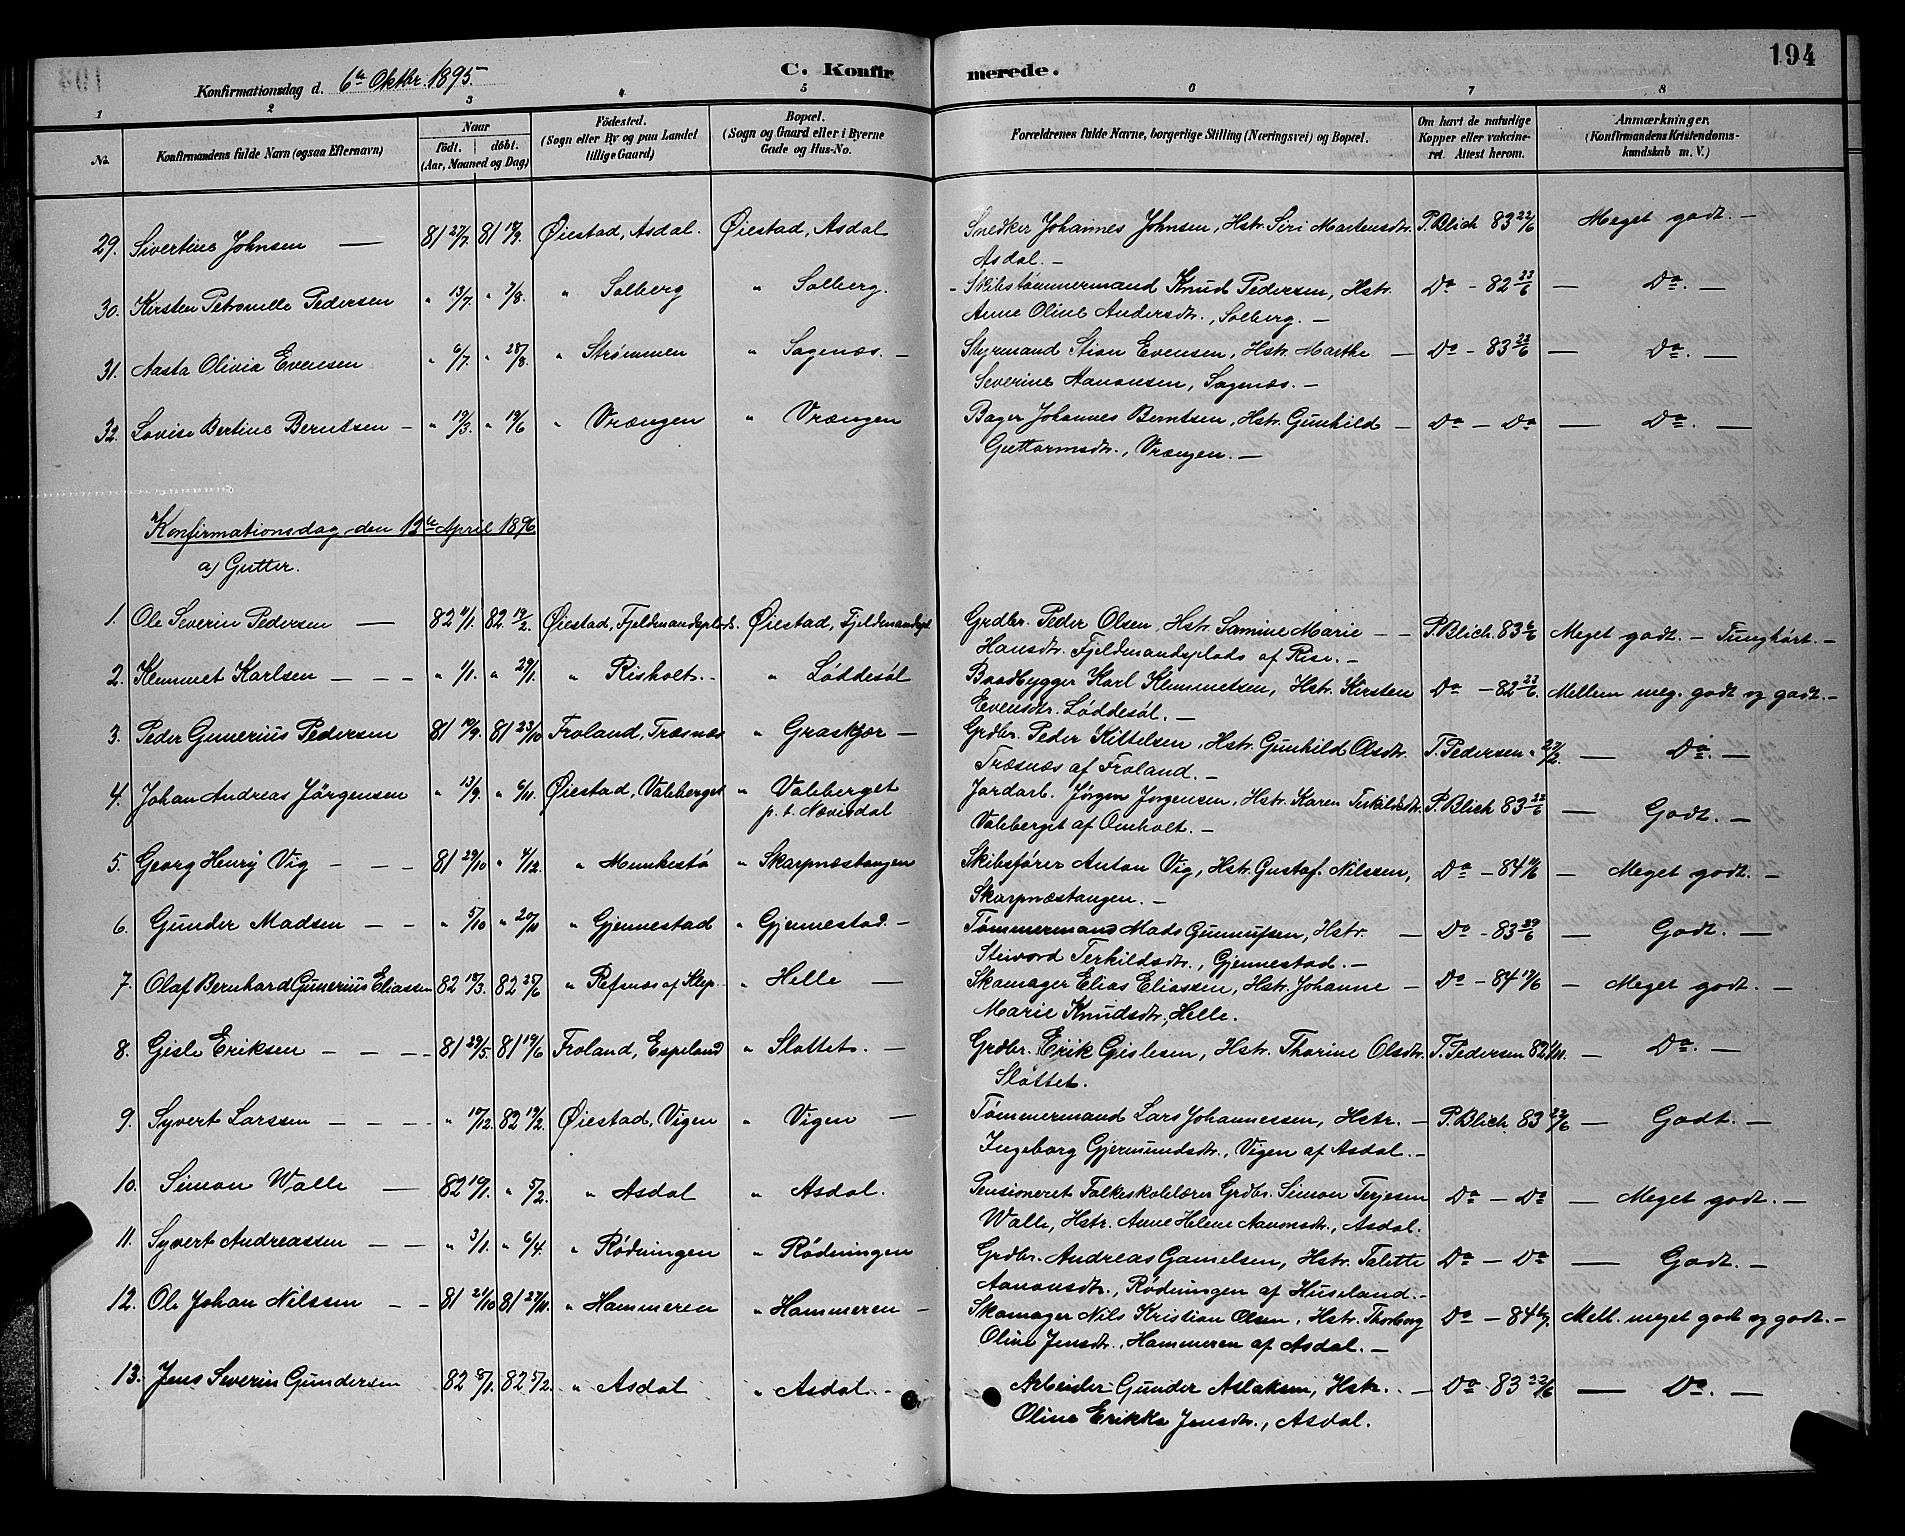 194
Konfirmationsdag d. 6te Oktbr. 1895.
C. Konfirmerede.
1 2 3 4 5 6 7 8
No. Konfirmandens fulde Navn (ogsaa Efternavn) Naar født. døbt. (Aar, Maaned og Dag) Födested. (Sogn eller By og paa Landet tillige Gaard) Bopæl. (Sogn og Gaard eller i Byerne Gade og Hus-No. Forældrenes fulde Navne, borgerlige Stilling (Næringsvei) og Bopæl. Om havt de naturlige Kopper eller vakcineret. Attest herom. Anmærkninger, (Konfirmandens Kristendomskundskab m. V.)
29. Sivertine Johnsen — 81 27/7. 81 18/9. Øiestad, Asdal. Øiestad, Asdal Snedker Johannes Johnsen, Hstr. Siri Martensdtr. P. Blich 83 22/6 Meget godt. —
Asdal. —
30. Kirsten Petronelle Pedersen " 13/7. " 7/8. " Solberg " Solberg. - Skibstømmermand Knud Pedersen, Hstr. Do - 82 23/6 — Do. —
Anne Oline Andersdtr., Solberg. —
31. Aasta Olivia Evensen " 6/7. " 28/8. " Strømmen " Sagenæs. — Styrmand Stian Evensen, Hstr. Marthe — Do - 83 22/6 — Do. —
Severine Aanonsen, Sagenæs. —
32. Lovise Bertine Berntsen - " 19/3. " 19/6 " Vrængen " Vrængen Bager Johannes Berntsen, Hstr. Gunhild — Do — Do — Do. —
Guttormsdtr., Vrængen. —
Konfirmationsdag den 12te April 1896
a) Gutter.
1. Ole Severin Pedersen — 82 11/1. 82 19/2. Øiestad, Fjeldmandsplads. Øiestad, Fjeldmandspl. Grdbr. Peder Olsen, Hstr. Samine Marie — — P. Blich. 83 6/6 Meget godt. — Tunghørt. —
Hansdtr. Fjeldmandsplads af Rise. —
2. Klemmet Karlsen — — — " 1/1. " 29/1. " Risholt. — " Løddesøl Baadbygger Karl Klemmetsen, Hstr. Kirsten Do — 82 23/6. Mellem meg. godt og godt. —
Evensdtr. Løddesøl. —
3. Peder Gunerius Pedersen 81 19/9. 81 23/10 Froland, Træsnæs " Graskjær — Grdbr. Peder Kittelsen, Hstr. Gunhild Olsdtr. T. Pedersen " 27/2. — Do. —
Træsnæs af Froland. —
4. Johan Andreas Jörgensen " 13/9. " 6/11. Øiestad, Valeberget " Valeberget Jordarb. Jørgen Jørgensen, Hstr. Karen Terkildsdtr. P. Blich 83 22/6 — Godt. —
p. t. Nævisdal Valeberget af Omholt. —
5. Georg Henry Vig — — — 81 29/10 " 4/12. " Munkestø " Skarpnæstangen Skibsfører Anton Vig, Hstr. Gustaf. Nilssen, Do — 84 19/6 — Meget godt. —
Skarpnæstangen. —
6. Gunder Madsen — — " 5/10 " 20/11 " Gjennestad " Gjennestad. — Tømmermand Mads Gunnufsen, Hstr. — Do - 83 29/6 — Godt. —
Steivord Terkildsdtr., Gjennestad. —
7. Olaf Bernhard Gunerius Eliassen 82 18/3. 82 25/6 " Refsnæs af Klep. " Helle — Skomager Elias Eliassen, Hstr. Johanne — Do — 84 19/6 — Meget godt. —
Marie Knudsdtr., Helle.
8. Gisle Eriksen — — — 81 29/5 81 19/6 Froland, Espeland " Slottet. — Grdbr. Erik Gislesen, Hstr. Thorine Olsdtr. T. Pedersen 82 1/11. — Do. —
Slottet.
9. Syvert Larssen — — — " 19/12. 82 19/2. Øiestad, Vigen " Vigen — Tømmermand Lars Johannesen, Hstr. — P. Blich. 83 22/6 — Godt. —
Ingeborg Gjermundsdtr., Vigen af Asdal. —
10. Simon Walle — 82 19/1. " 5/2. " Asdal " Asdal. Pensioneret Folkeskolelærer Grdbr. Simon Terjesen Do — Do — Meget godt. —
Walle, Hstr. Anne Helene Aanonsdtr., Asdal.
11. Syvert Andreassen — — " 3/1. " 6/4. " Rødningen " Rødningen Grdbr. Andreas Gamelsen, Hstr. Talette Do — Do — Godt. —
Aanonsdtr., Rødningen af Huseland. —
12. Ole Johan Nilssen — — 81 21/10 81 27/11. " Hammeren " Hammeren — Skomager Nils Kristian Olsen, Hstr. Thorborg Do — 84 Mell. meget godt og godt. —
Oline Jensdtr., Hammeren af Asdal. —
13. Jens Severin Gundersen 82 8/1. 82 5/2. " Asdal " Asdal. — Arbeider Gunder Aslaksen, Hstr. — Do - 83 22/6 — Do. —
Oline Erikka Jensdtr., Asdal.